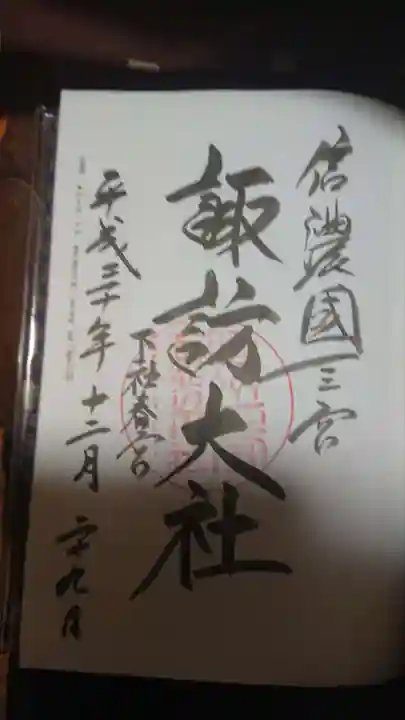 信濃國三宮
諏訪大社
下社春宮
平成三十年十二月二十九日